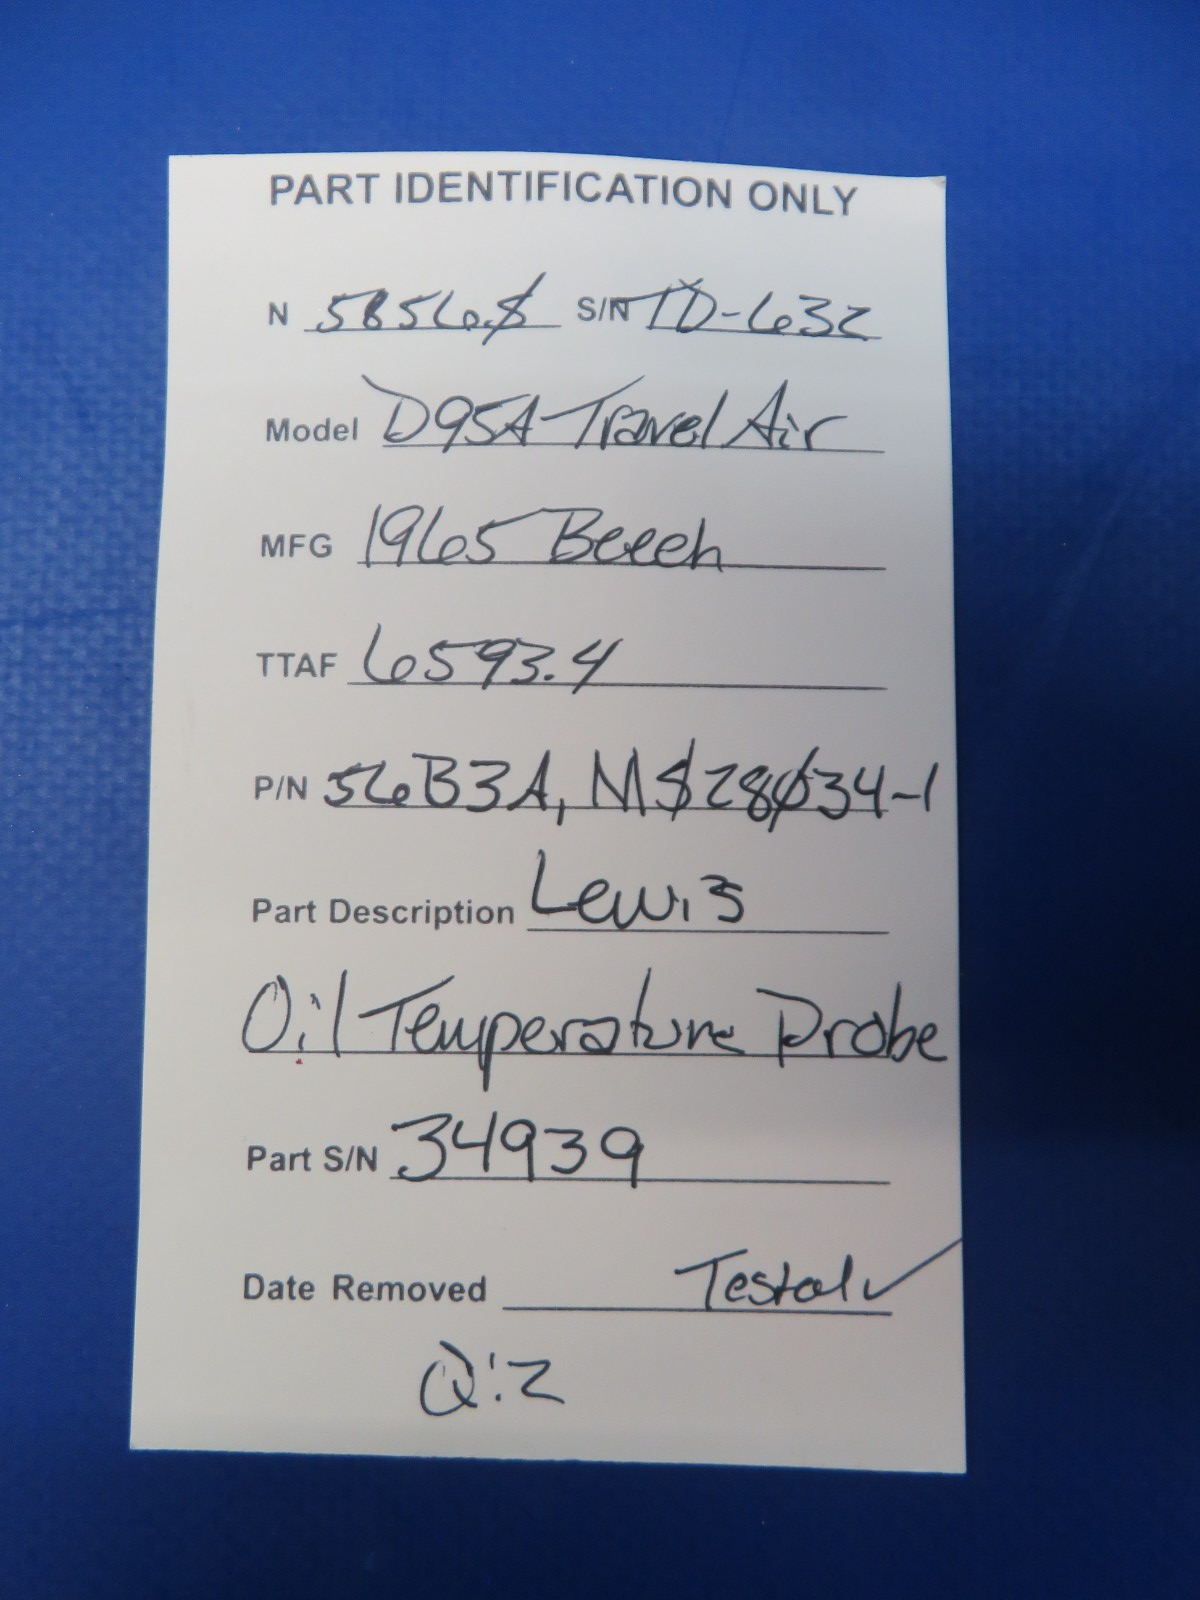 PART IDENTIFICATION ONLY
N 5856S S/N TD-632
Model D95A Travel Air
MFG 1965 Beech
TTAF 6593.4
P/N 56B3A, M$28034-1
Part Description Lewis
Oil Temperature Probe
Part S/N 34939
Date Removed Tested ✓
Q:2